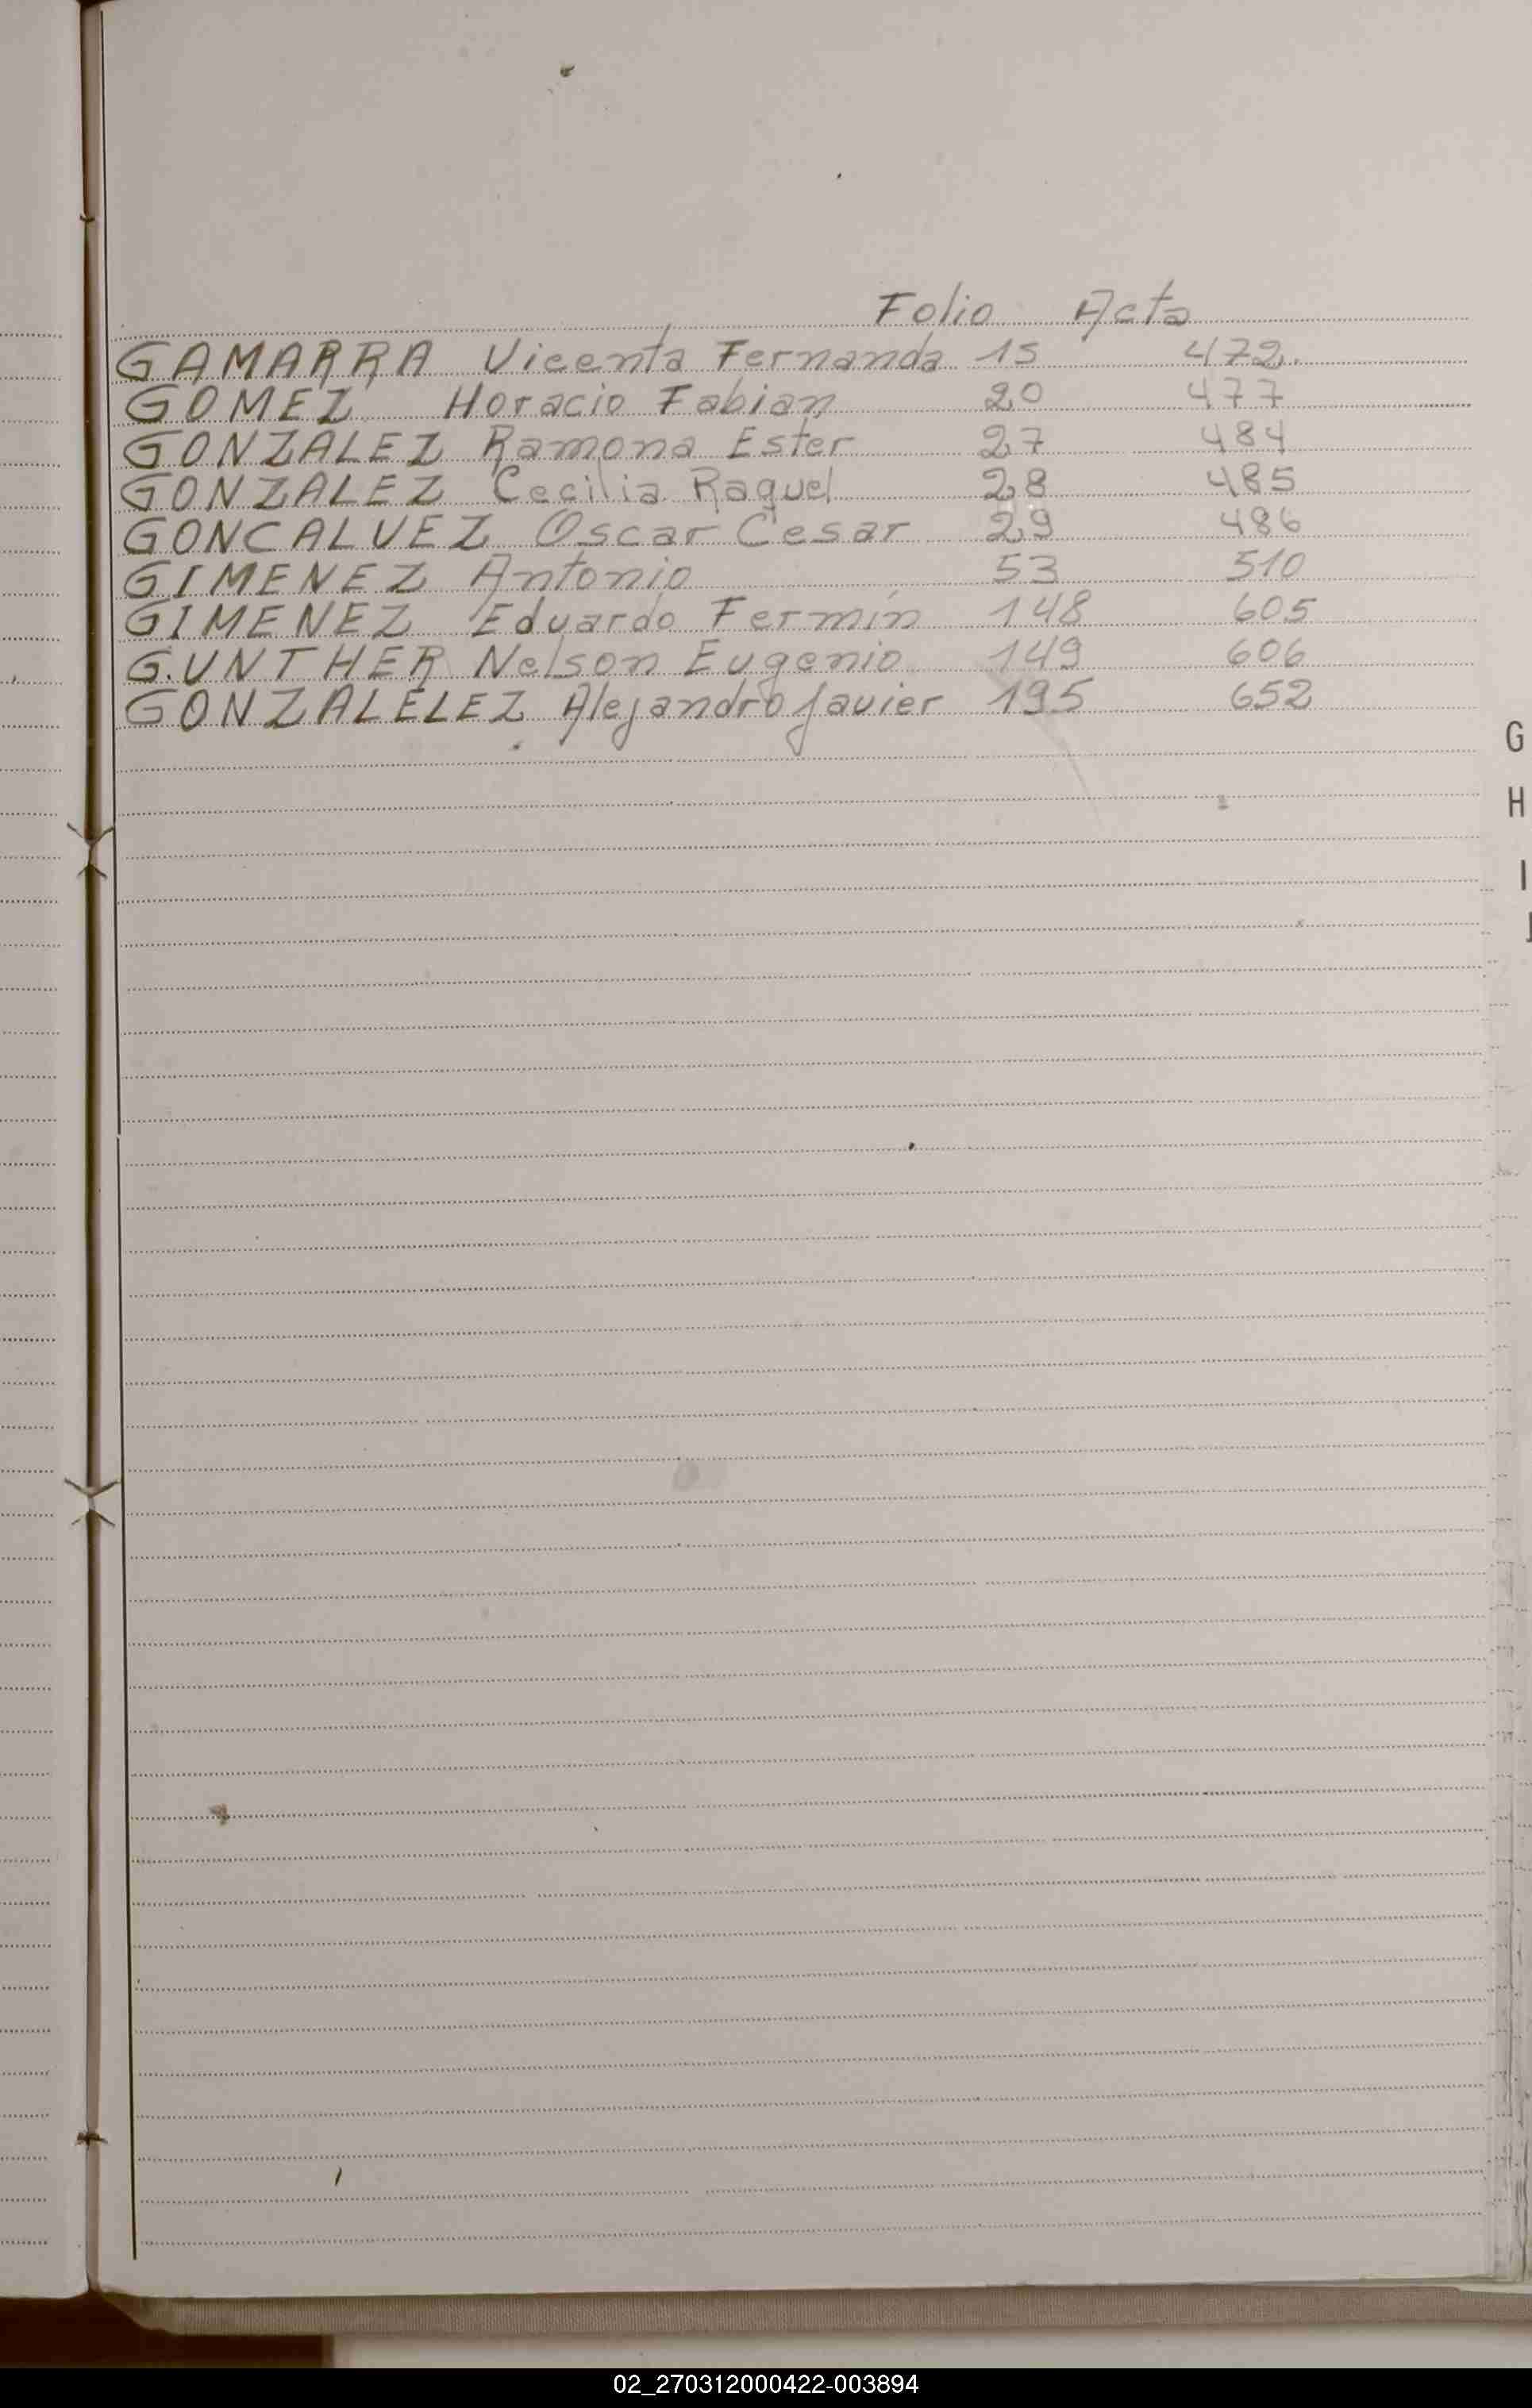 Folio Acta
GAMARRA Vicenta Fernanda 15 472.
GOMEZ Horacio Fabian 20 477
GONZALEZ Ramona Ester 27 484
GONZALEZ Cecilia Raquel 28 485
GONCALVEZ Oscar Cesar 29 486
GIMENEZ Antonio 53 510
GIMENEZ Eduardo Fermín 148 605
G.UNTHER Nelson Eugenio 149 606
GONZALELEZ Alejandro Javier 195 652
G
H
I
J
02_270312000422-003894